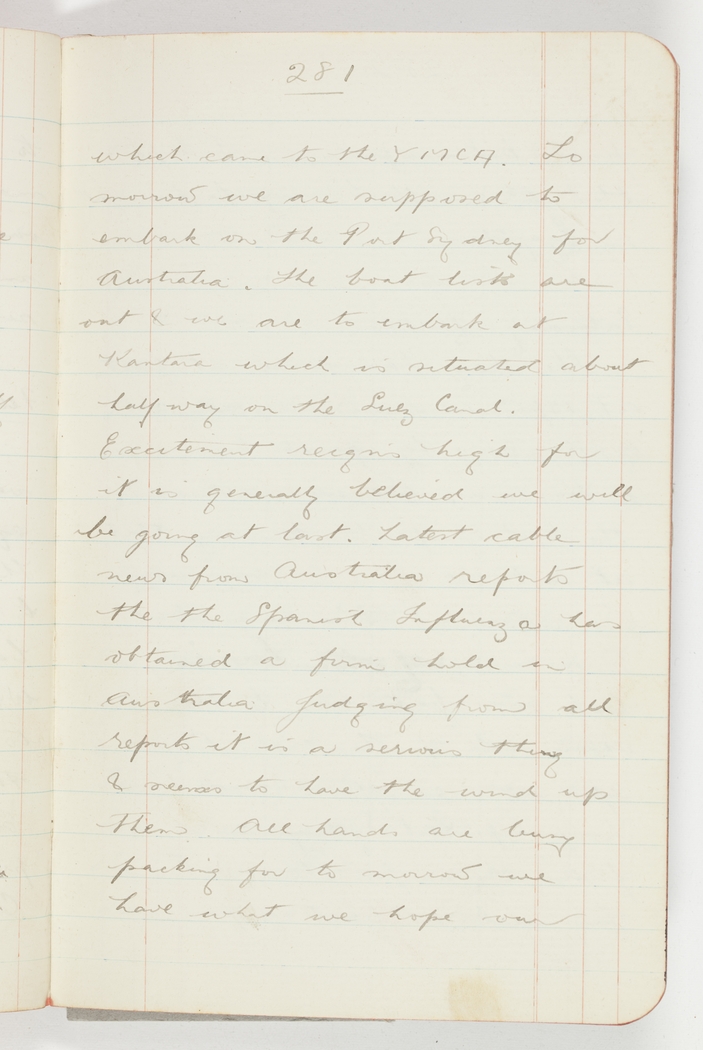 281
which came to the YMCA. To
morrow we are supposed to
embark on the Port Sydney for
Australia. The boat lists are
out & we are to embark at
Kantara which is situated about
half way on the Suez Canal.
Excitement reigns high for
it is generally believed we will
be going at last. Latest cable
news from Australia reports
the the Spanish Influenza has
obtained a firm hold in
Australia Judging from all
reports it is a serious thing
& seems to have the wind up
them. All hands are busy
packing for to morrow we
have what we hope our